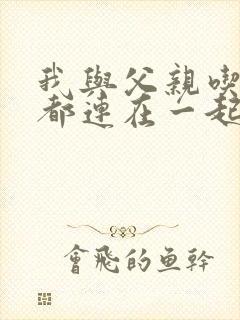 我與父親喫
都連在一起
會飛的魚幹